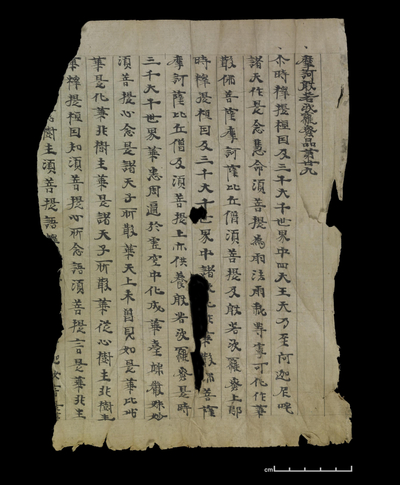 摩訶般若波羅蜜品第廿九
尒時釋提桓因及三千大千世界中四天王天乃至阿迦尼吒
諸天作是念慧命須菩提為雨法雨我等寧可化作華
散佛菩薩摩訶薩比丘僧須菩提及般若波羅蜜上即
時釋提桓因及三千大千世界中諸華散佛菩薩
摩訶薩比丘僧及須菩提上亦供養般若波羅蜜是時
三千大千世界華悉周遍於虛空中化成華臺端嚴殊妙
須菩提心念是諸天子所散華天上未曾見如是華比是
華是化華非樹生華是諸天子所散華從心樹生非樹生
華釋提桓因知須菩提心所念語須菩提言是華非生
樹生須菩提語
cm